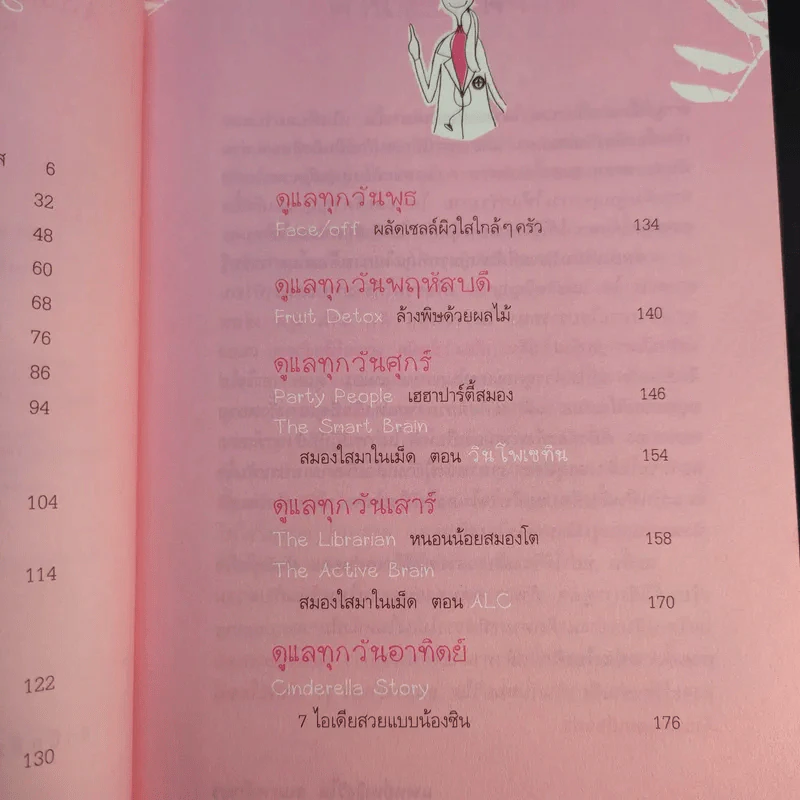 ส 6
32
48
60
68
76
86
94
104
114
122
130
ดูแลทุกวันพุธ
Face/off ผลัดเซลล์ผิวใสใกล้ๆครัว 134
ดูแลทุกวันพฤหัสบดี
Fruit Detox ล้างพิษด้วยผลไม้ 140
ดูแลทุกวันศุกร์
Party People เฮฮาปาร์ตี้สมอง 146
The Smart Brain
สมองใสมาในเม็ด ตอน วินโพเซทิน 154
ดูแลทุกวันเสาร์
The Librarian หนอนน้อยสมองโต 158
The Active Brain
สมองใสมาในเม็ด ตอน ALC 170
ดูแลทุกวันอาทิตย์
Cinderella Story
7 ไอเดียสวยแบบน้องซิน 176